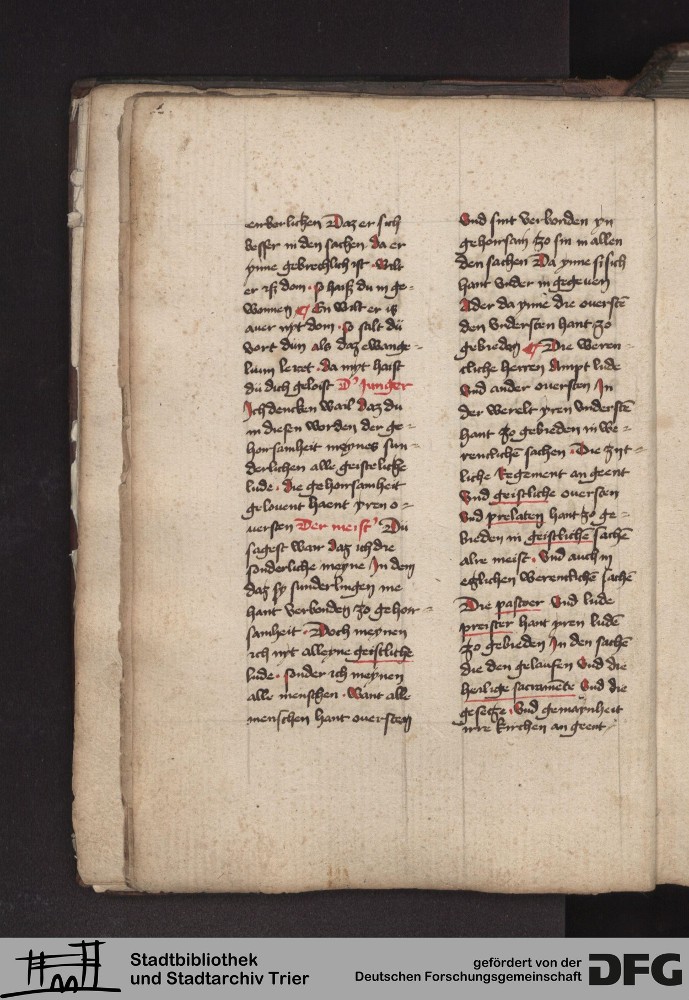 enborlichen Daz er sich
besser in den sachen da er
ynne gebrechlich ist · Wilt
er iß dom · so haiß du in ge-
wonnen En wilt er iß
auer nyt dom · so salt dü
vort dün als daz ewange-
lium leret · da myt haist
dü dich geloist D' Junger
Ich dencken wail daz du
in diesen worden der ge-
horsamheit meynes sun-
derlichen alle geistelicħe
lude · die gehorsamheit
gelouent haent yren o-
uersten Der meist' Dü
sagest wair daz ich die
sonderliche meyne In dem
daz sy sunderlingen me
hant verbonden zo gehor-
samheit · Doch meynen
ich nyt alleyne geistliche
lude · sonder ich meynen
alle menschen · Want alle
menschen hant ouersten
Vnd sint verbonden yn
gehoirsam zo sin in allen
den sachen Da ynne si sich
hant vnder in gegeuen
Ader da ynne die ouerstē
den vndersten hant zo
gebieden Die weren-
cliche herren Ampt lude
Vnd ander ouersten In
der werelt yren vnderstē
hant zo gebieden in we-
renclichē sachen · Die zyt-
liche Regement an geent
Vnd geistliche ouersten
Vnd prelaten hant zo ge-
bieden in geistlichē sachē
alre meist · Vnd auch in
etzlichen werentlichē sachē
Die pastoer Vnd lude
preister hant yren ludē
zo gebieden In den sachē
die den gelaufen Vnd die
heilige sacramēte Vnd die
gesetze · Vnd gemaynheit
irre kirchen an geent
Stadtbibliothek
und Stadtarchiv Trier
gefördert von der
Deutschen Forschungsgemeinschaft
DFG